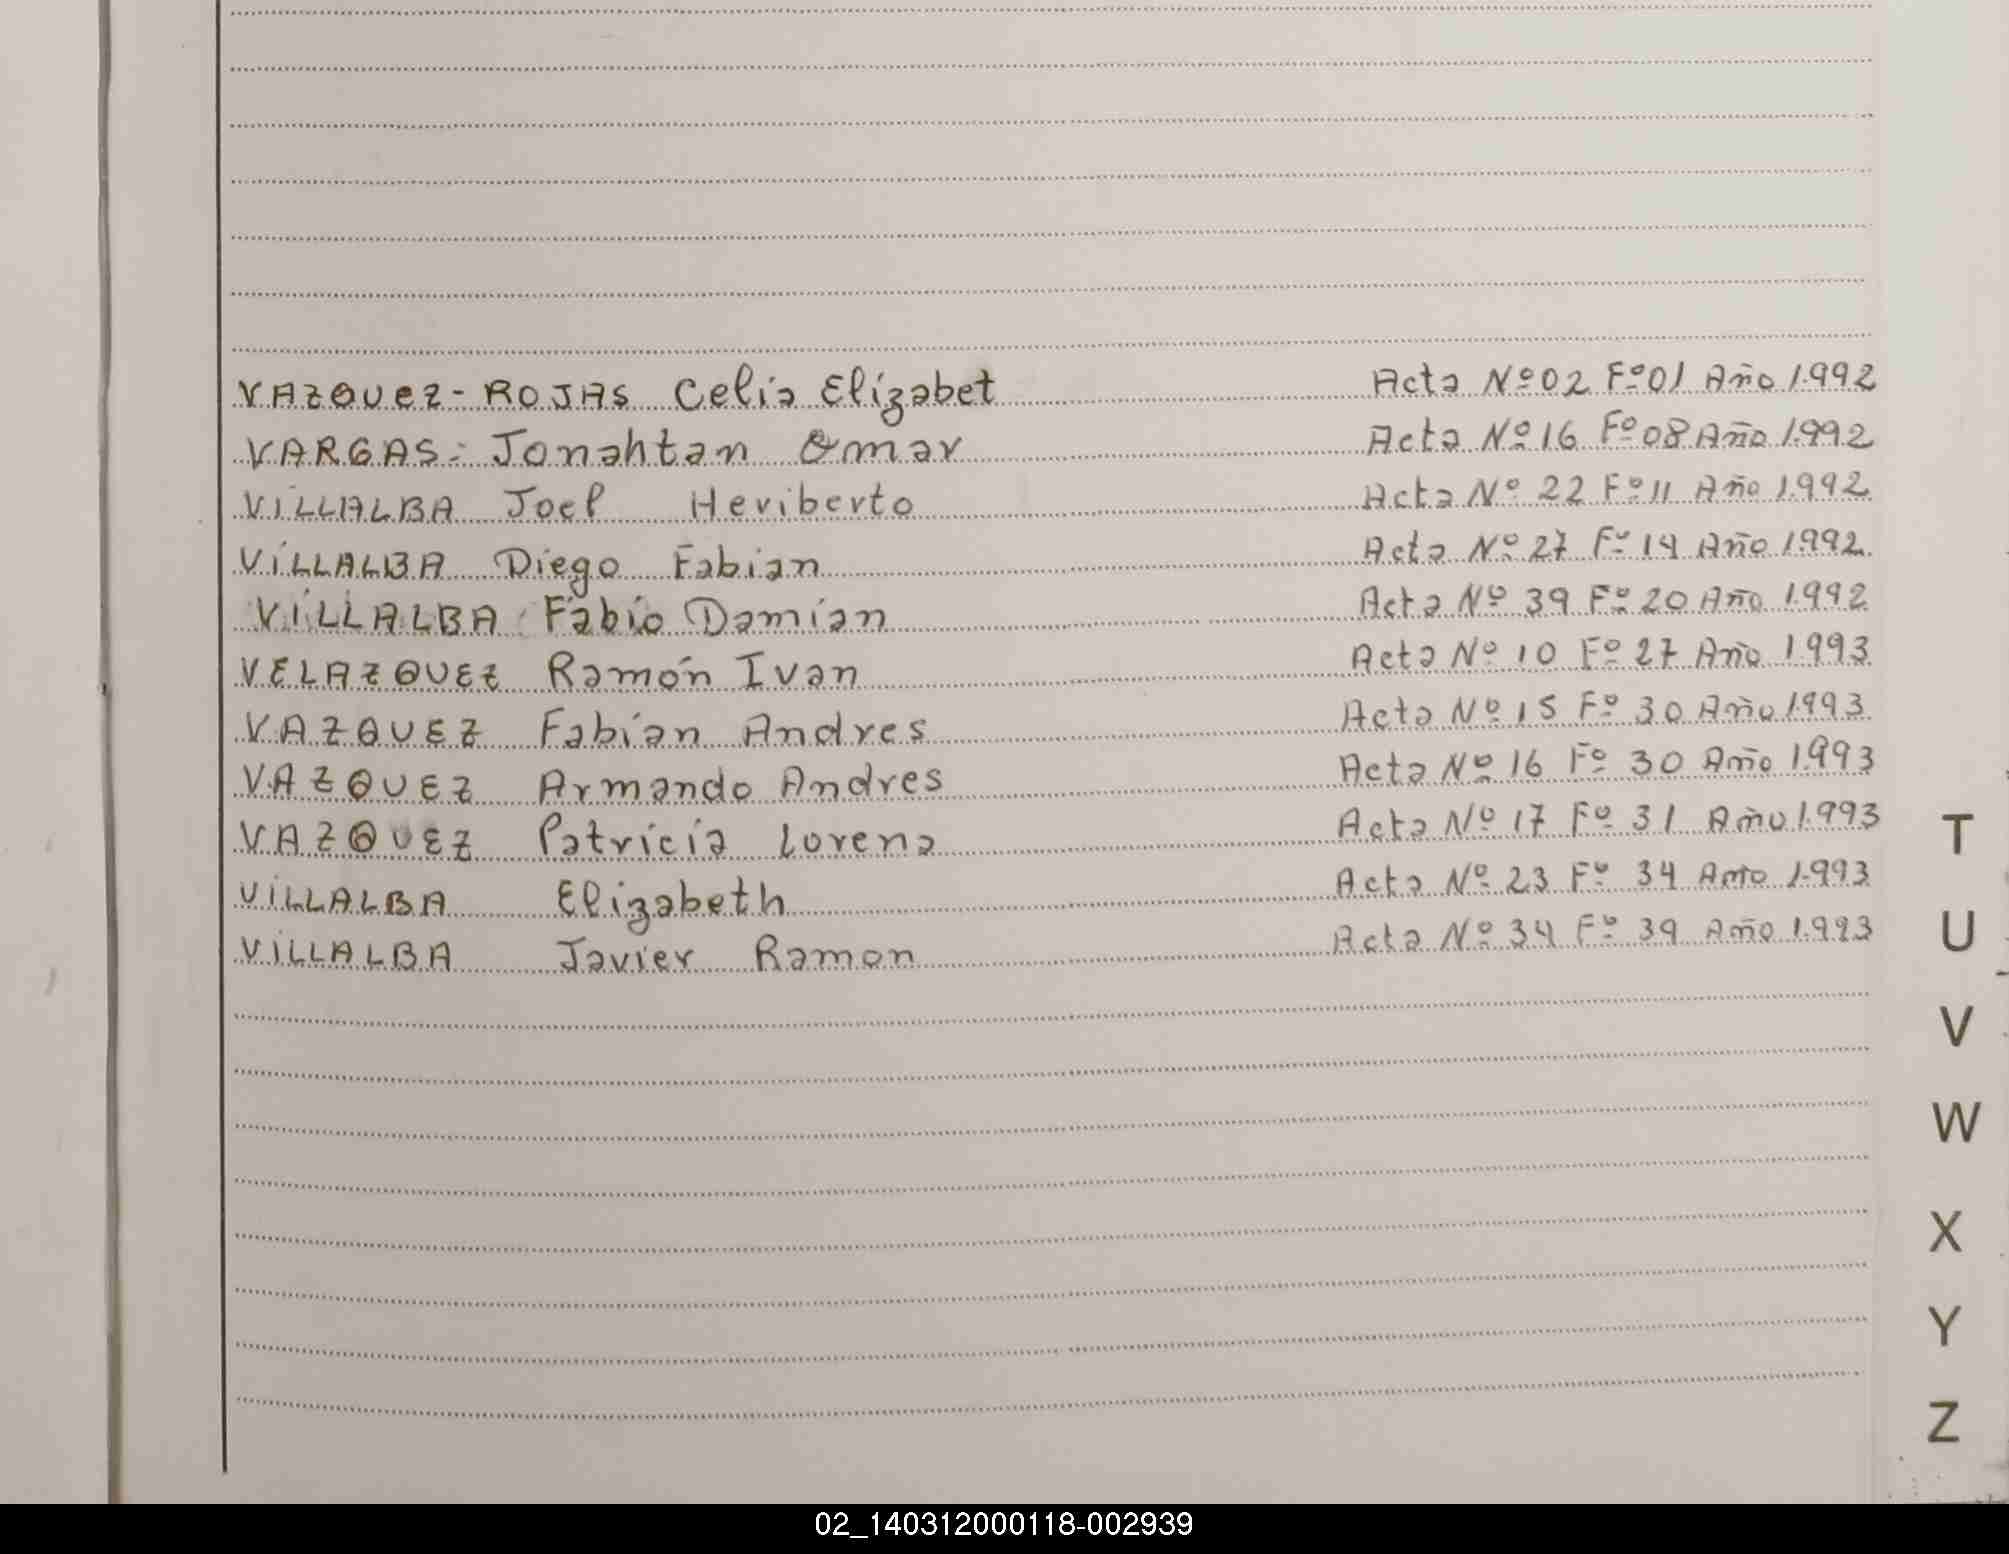 VAZQUEZ - ROJAS Celia Elizabet Acta Nº 02 Fº 01 Año 1.992
VARGAS - Jonahtan Omar Acta Nº 16 Fº 08 Año 1.992
VILLALBA Joel Heriberto Acta Nº 22 Fº 11 Año 1.992
VILLALBA Diego Fabian Acta Nº 27 Fº 14 Año 1.992
VILLALBA Fabio Damian Acta Nº 39 Fº 20 Año 1.992
VELAZQUEZ Ramón Ivan Acta Nº 10 Fº 27 Año 1.993
VAZQUEZ Fabian Andres Acta Nº 15 Fº 30 Año 1.993
VAZQUEZ Armando Andres Acta Nº 16 Fº 30 Año 1.993
VAZQUEZ Patricia Lorena Acta Nº 17 Fº 31 Año 1.993
VILLALBA Elizabeth Acta Nº 23 Fº 34 Año 1.993
VILLALBA Javier Ramon Acta Nº 34 Fº 39 Año 1.993
T
U
V
W
X
Y
Z
02_140312000118-002939